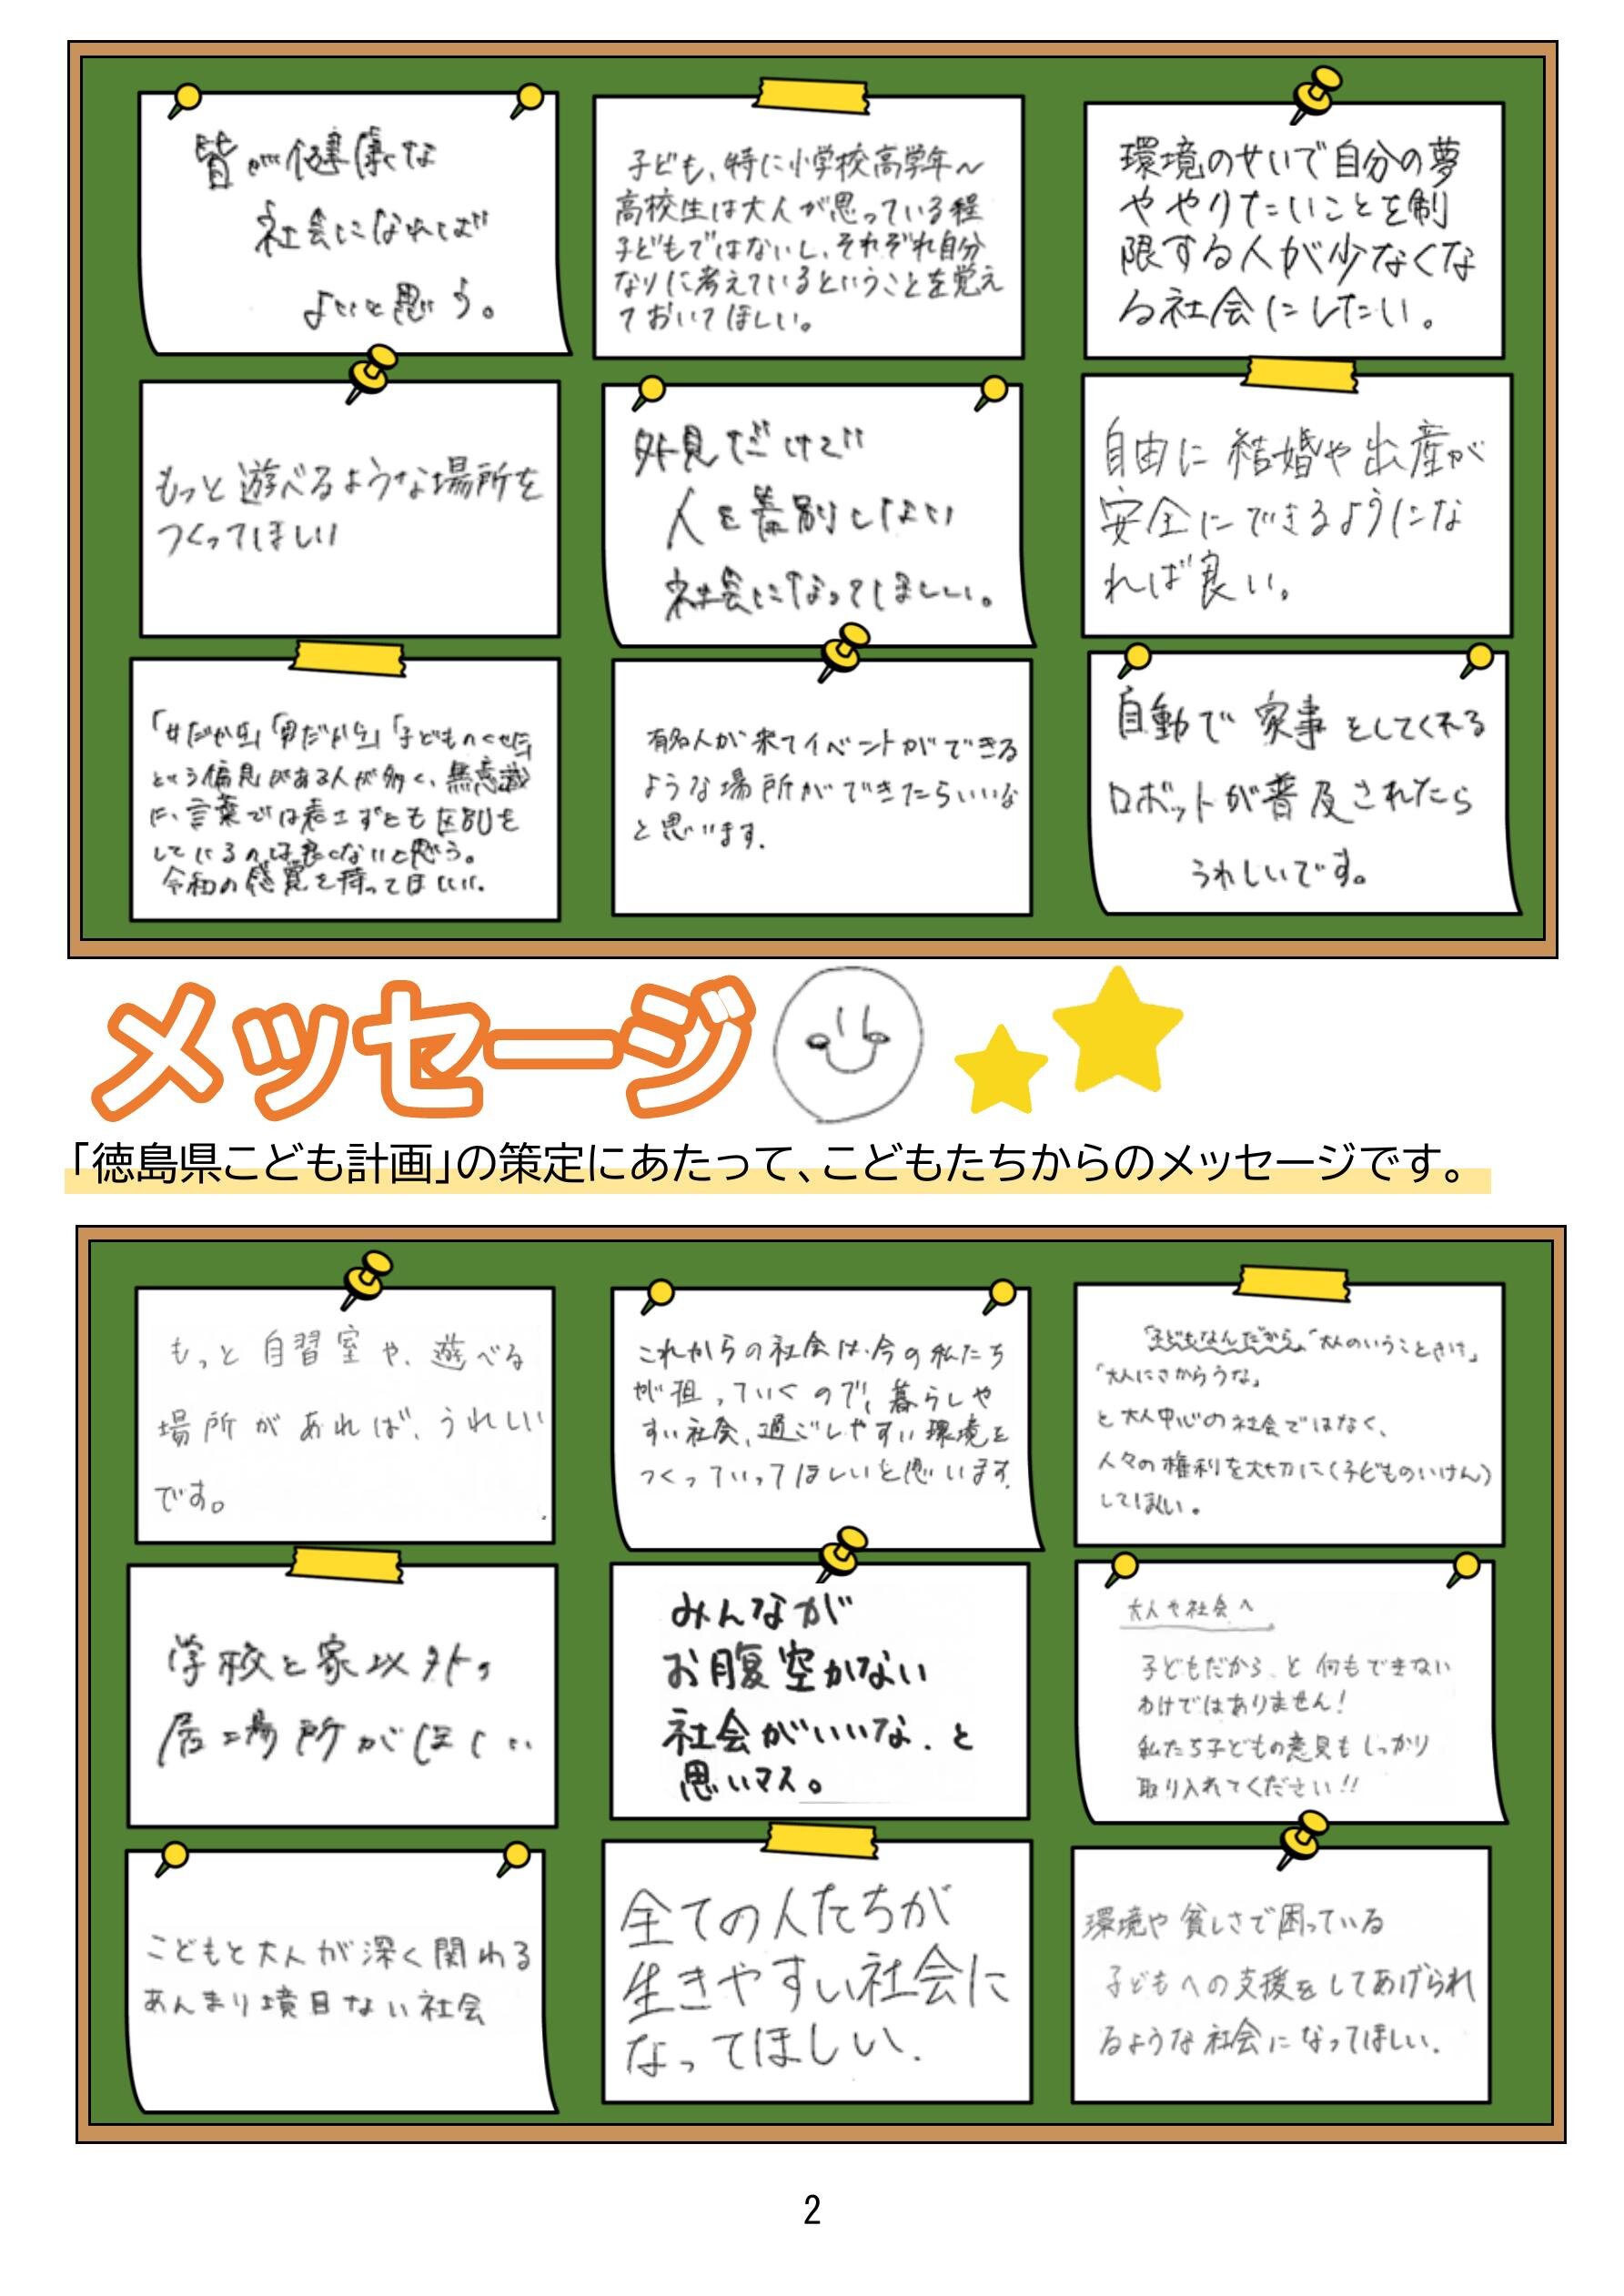 皆が健康な
社会になれば
よいと思う。
子ども、特に小学校高学年～
高校生は大人が思っている程
子どもではないし、それぞれ自分
なりに考えているということを覚え
ておいてほしい。
環境のせいで自分の夢
ややりたいことを制
限する人が少なくな
る社会にしたい。
もっと遊べるような場所を
つくってほしい
外見だけで
人を差別しない
社会になってほしい。
自由に結婚や出産が
安全にできるようにな
れば良い。
「女だから」「男だから」「子どものくせに」
という偏見がある人が多く、無意識
に、言葉では表さずとも区別を
しているのは良くないと思う。
令和の感覚を持ってほしい。
有名人が来てイベントができる
ような場所ができたらいいな
と思います.
自動で家事をしてくれる
ロボットが普及されたら
うれしいです。
メッセージ
「徳島県こども計画」の策定にあたって、こどもたちからのメッセージです。
もっと自習室や、遊べる
場所があれば、うれしい
です。
これからの社会は、今の私たち
が担っていくので、暮らしや
すい社会、過ごしやすい環境を
つくっていってほしいと思います.
「子どもなんだから」「大人のいうこときけ」
「大人にさからうな」
と大人中心の社会ではなく、
人々の権利を大切に(子どものいけん)
してほしい。
学校と家以外の
居場所がほしい
みんなが
お腹空かない
社会がいいな、と
思いマス。
大人や社会へ
子どもだから、と何もできない
わけではありません!
私たち子どもの意見もしっかり
取り入れてください!!
こどもと大人が深く関わる
あんまり境目ない社会
全ての人たちが
生きやすい社会に
なってほしい.
環境や貧しさで困っている
子どもへの支援をしてあげられ
るような社会になってほしい.
2